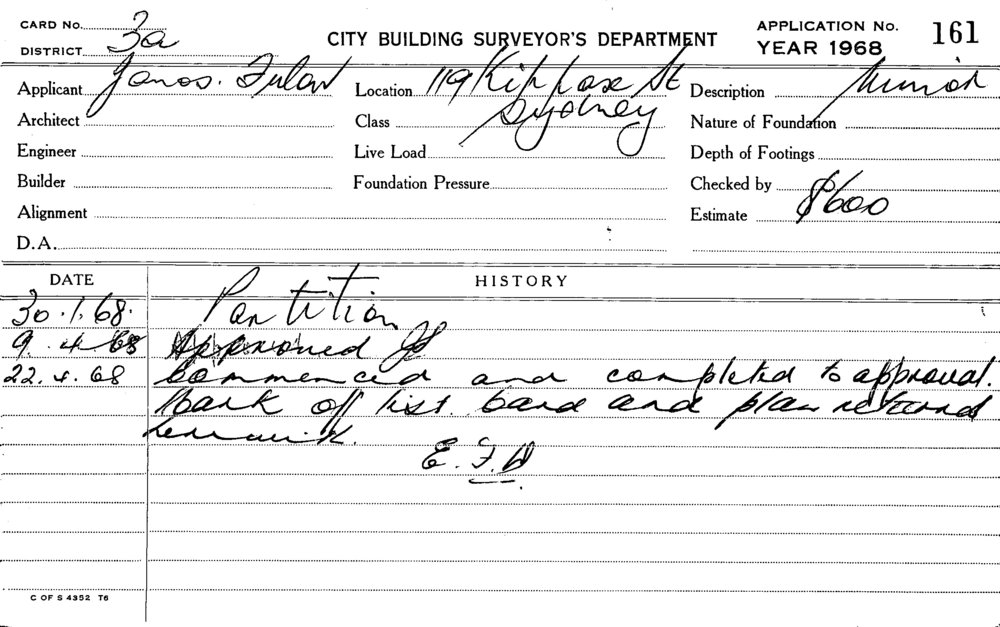 CARD No.
DISTRICT 3a
CITY BUILDING SURVEYOR'S DEPARTMENT
APPLICATION No. 161
YEAR 1968
Applicant Janos.
Location 119 Kippax St
Sydney
Description Minor
Architect
Class
Nature of Foundation
Engineer
Live Load
Depth of Footings
Builder
Foundation Pressure
Checked by
Alignment
Estimate $600
D.A.
DATE HISTORY
30.1.68. Partition
9.4.68 Approved
22.4.68 Commenced and completed to approval.
Mark off list. Card and plan returned
herewith.
E.F.
C OF S 4352 T6